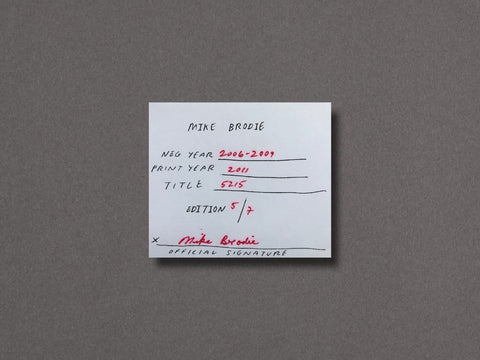 MIKE BRODIE
NEG YEAR 2006-2009
PRINT YEAR 2011
TITLE 5215
EDITION 5/7
x Mike Brodie
OFFICIAL SIGNATURE